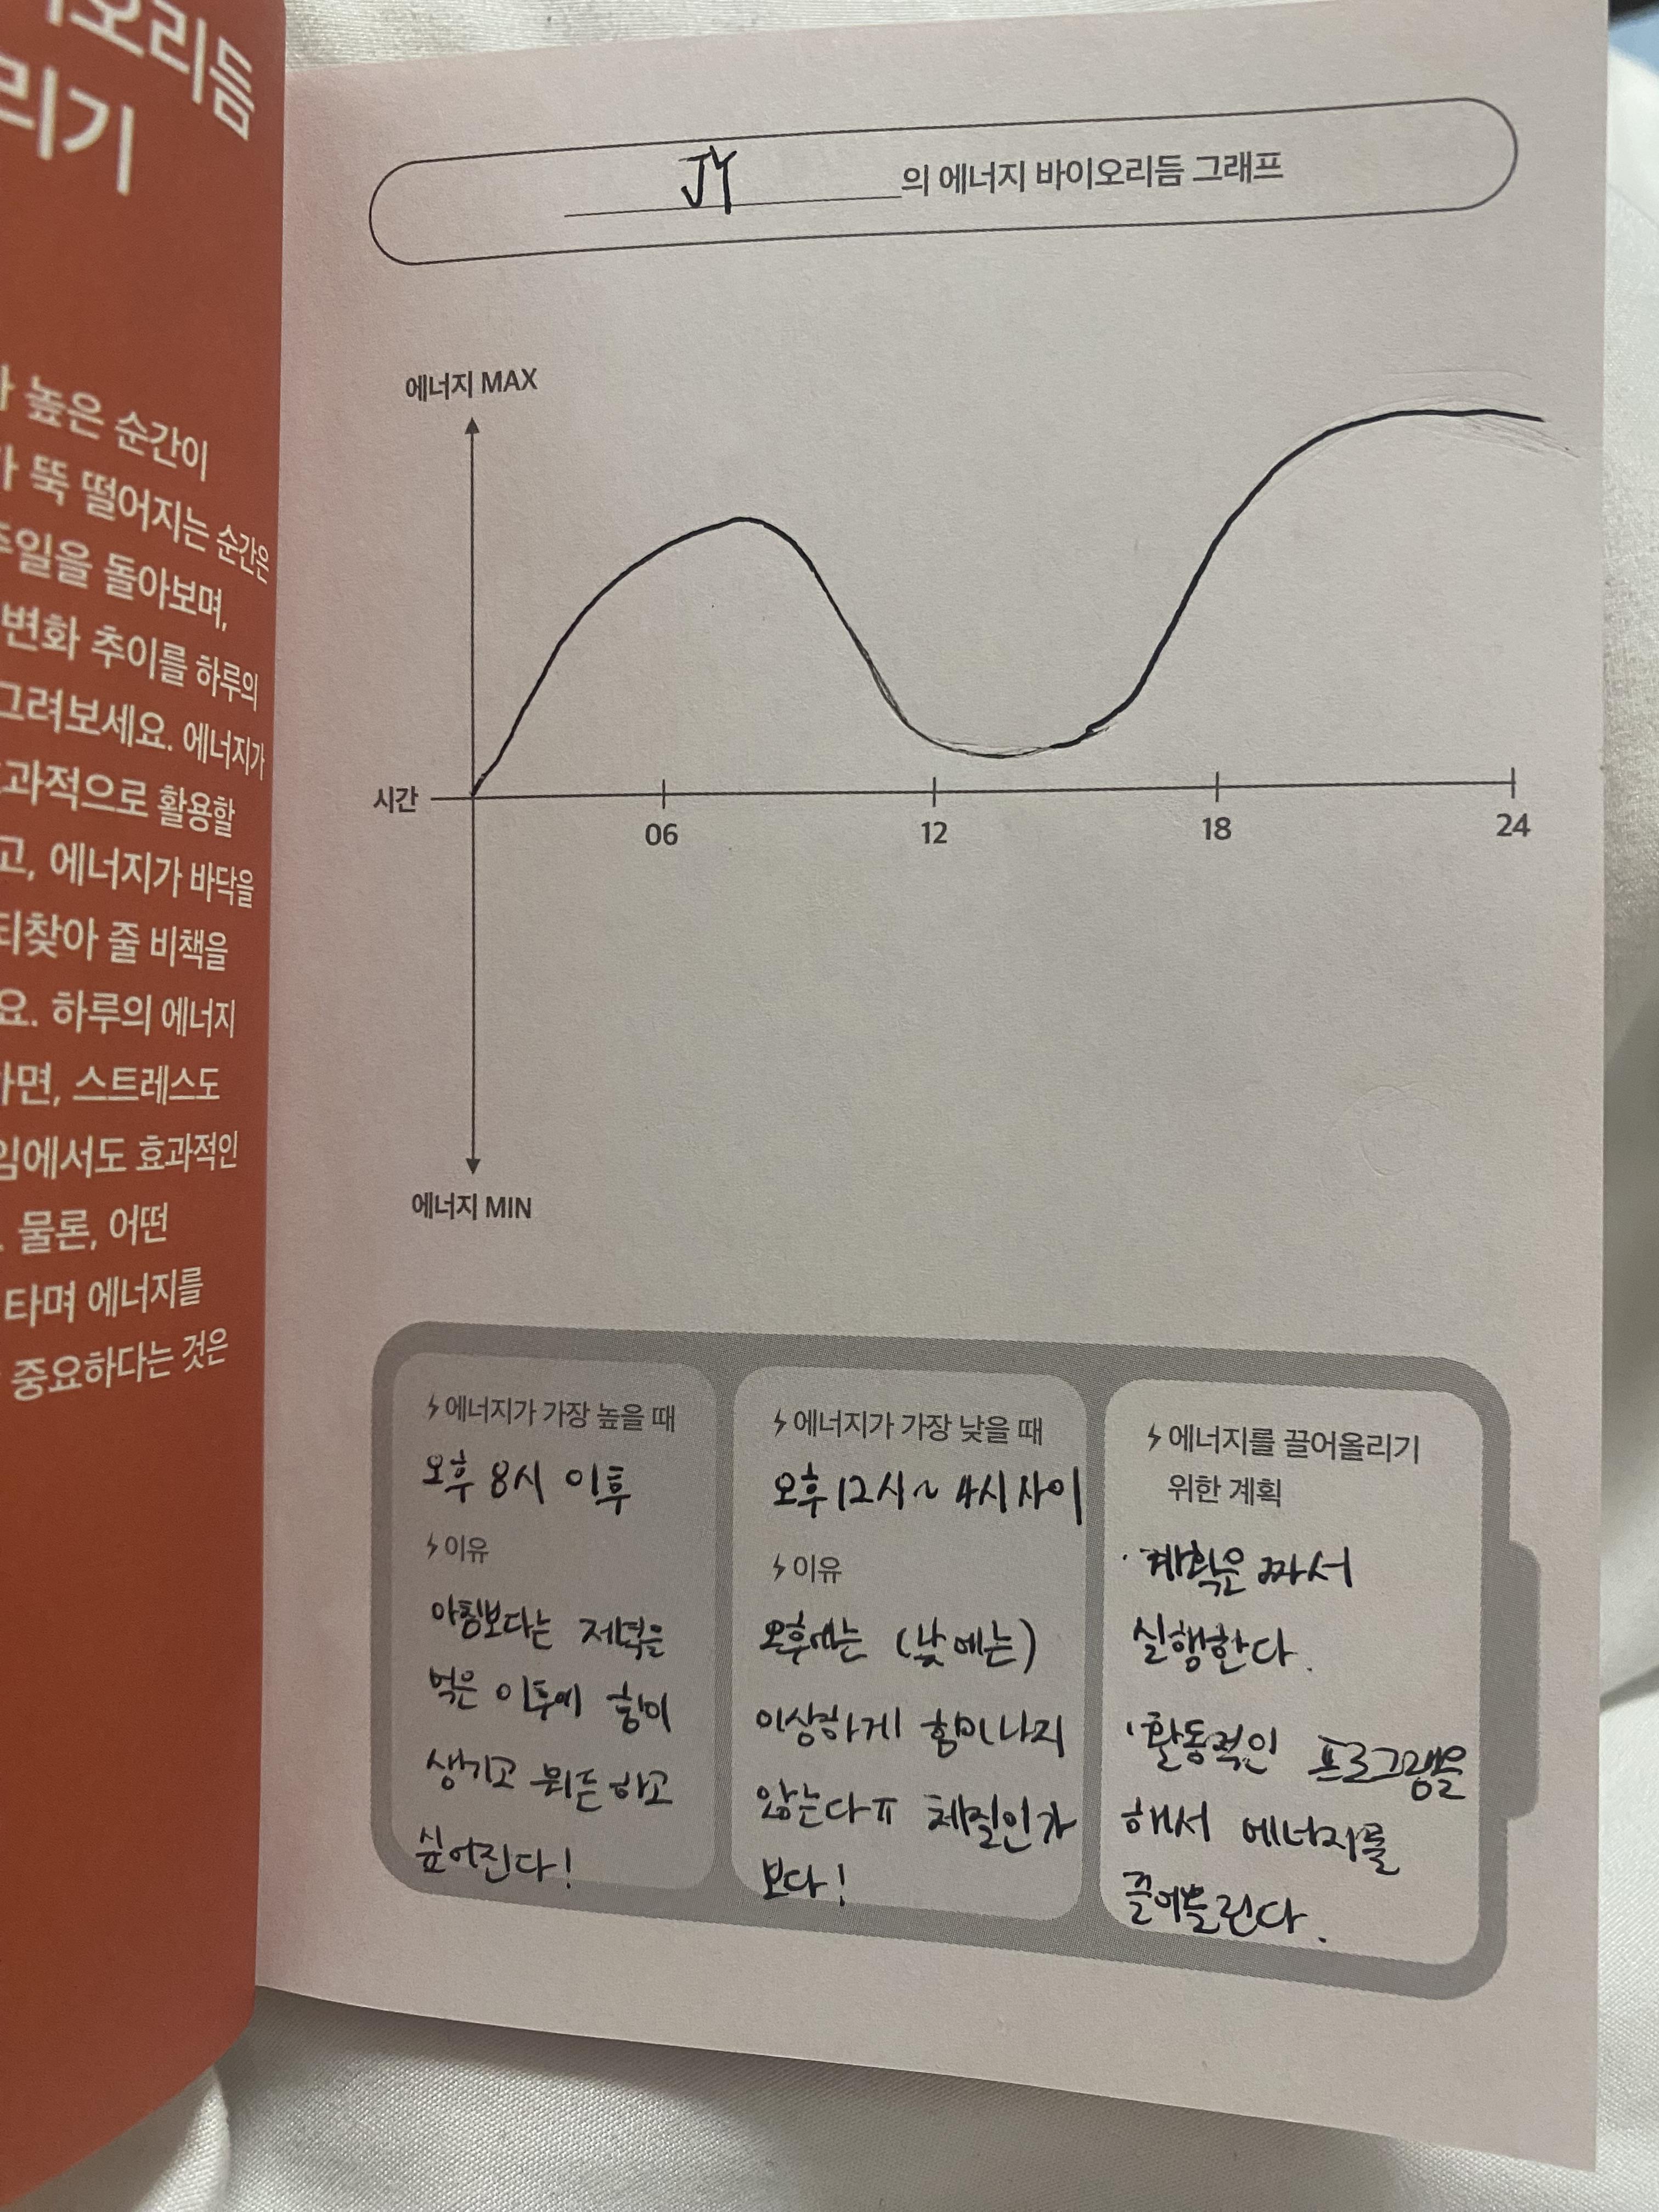 오리듬
리기
높은 순간이
뚝 떨어지는 순간은
주일을 돌아보며,
변화 추이를 하루의
그려보세요. 에너지가
효과적으로 활용할
고, 에너지가 바닥을
되찾아 줄 비책을
요. 하루의 에너지
하면, 스트레스도
임에서도 효과적인
물론, 어떤
타며 에너지를
중요하다는 것은
JY의 에너지 바이오리듬 그래프
에너지 MAX
시간
06 12 18 24
에너지 MIN
에너지가 가장 높을 때
오후 8시 이후
이유
아침보다는 저녁을
먹은 이후에 힘이
생기고 뭐든 하고
싶어진다!
에너지가 가장 낮을 때
오후 12시~4시 사이
이유
오후에는 (낮에는)
이상하게 힘이 나지
않는다ㅠ 체질인가
보다!
에너지를 끌어올리기
위한 계획
· 계획은 짜서
실행한다.
· 활동적인 프로그램을
해서 에너지를
끌어올린다.